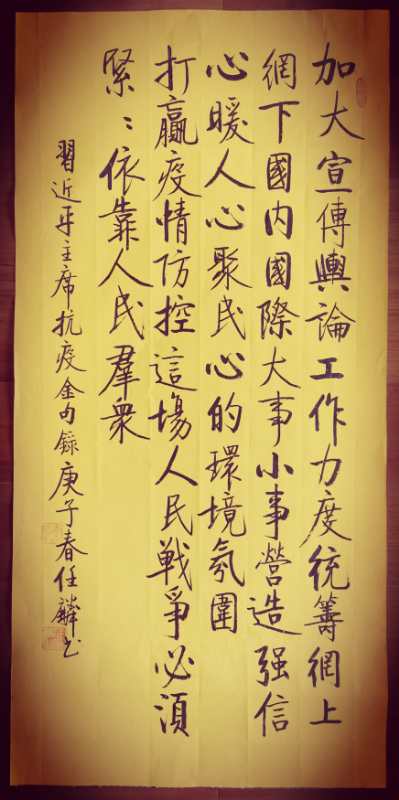 加大宣傳輿論工作力度統籌網上
網下國內國際大事小事營造强信
心暖人心聚民心的環境氛圍
打贏疫情防控這場人民戰爭必須
緊緊依靠人民羣衆
習近平主席抗疫金句錄庚子春任麟书